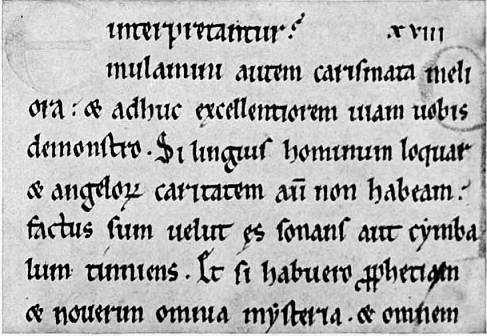 interpretantur? xviii
mulamini autem carismata meli
ora: & adhuc excellentiorem uiam uobis
demonstro. Si linguis hominum loquar
& angeloꝝ caritatem aū non habeam:
factus sum uelut ęs sonans aut cymba
lum tinniens. Et si habuero ꝓphetiam
& nouerim omnia mysteria. & omnem